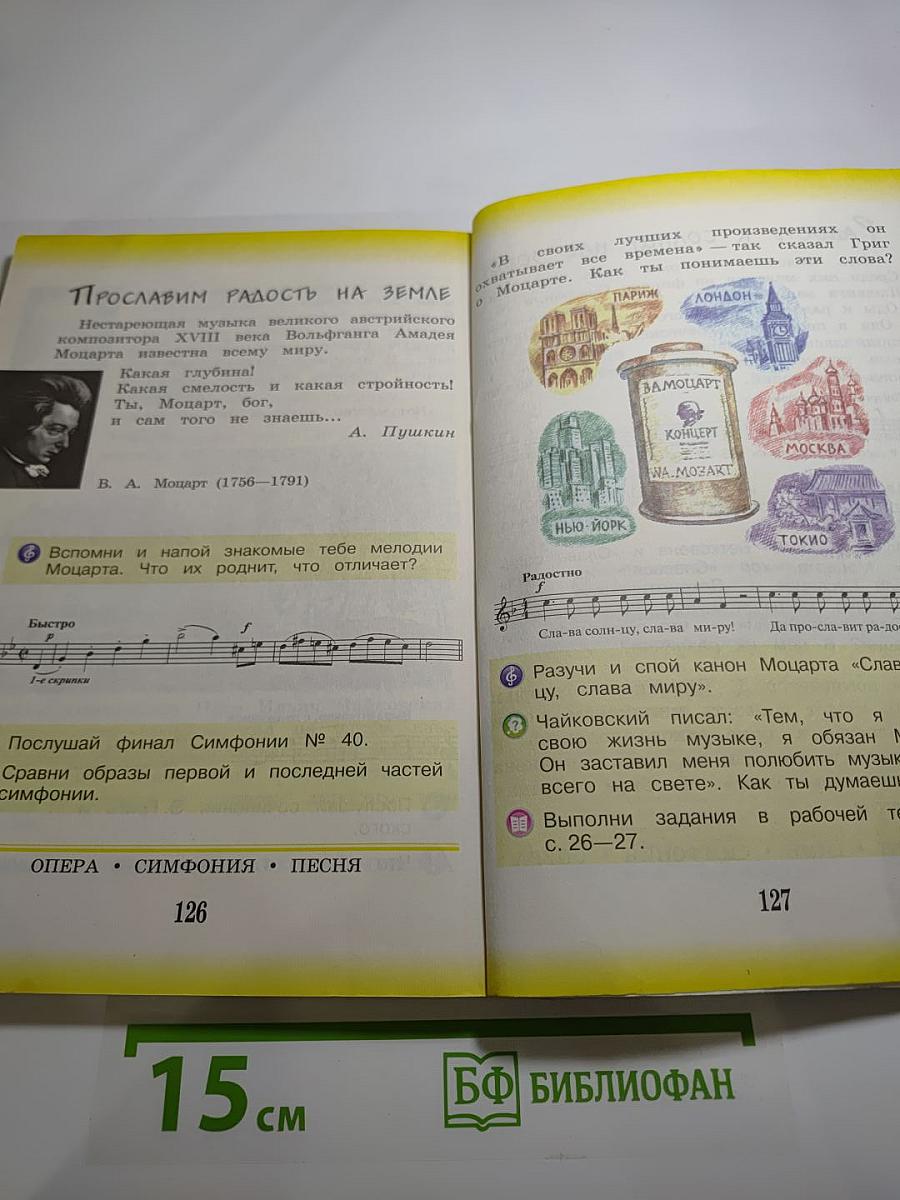 ПРОСЛАВИМ РАДОСТЬ НА ЗЕМЛЕ
Нестареющая музыка великого австрийского
композитора XVIII века Вольфганга Амадея
Моцарта известна всему миру.
Какая глубина!
Какая смелость и какая стройность!
Ты, Моцарт, бог,
и сам того не знаешь...
А. Пушкин
В. А. Моцарт (1756—1791)
Вспомни и напой знакомые тебе мелодии
Моцарта. Что их роднит, что отличает?
Быстро
p
f
1-е скрипки
Послушай финал Симфонии № 40.
Сравни образы первой и последней частей
симфонии.
ОПЕРА • СИМФОНИЯ • ПЕСНЯ
126
«В своих лучших произведениях он
охватывает все времена» — так сказал Григ
о Моцарте. Как ты понимаешь эти слова?
ПАРИЖ
ЛОНДОН
В.А.МОЦАРТ
КОНЦЕРТ
W.A.MOZART
МОСКВА
НЬЮ-ЙОРК
ТОКИО
Радостно
f
Сла-ва солн-цу, сла-ва ми-ру! Да про-сла-вит ра-дос
Разучи и спой канон Моцарта «Слав
цу, слава миру».
Чайковский писал: «Тем, что я
свою жизнь музыке, я обязан М
Он заставил меня полюбить музык
всего на свете». Как ты думаешь
Выполни задания в рабочей те
с. 26—27.
127
15 см
БФ БИБЛИОФАН